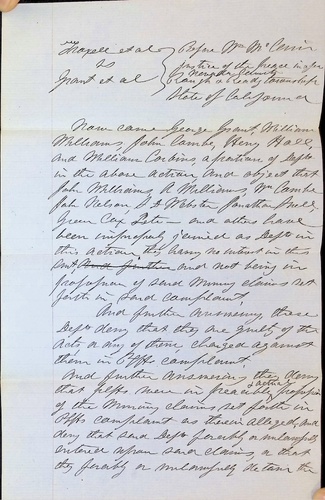 et al } Before Wm McCuin
vs } Justice of the peace in & for
Grant et al } Nevada County
Rough & Ready township
State of California
Now came George Grant, William
Williams, John Cambe, Henry Hall,
and William Corbins, a portion of Defts
in the above action, and object that
John Williams, R Williams, Wm Cambe
John Nelson, Webster, Jonathan
Green Cox, Pete – and others have
been improperly joined as Defts in
this action, they having no interest in this
suit, and further and not being in
possession of said mining claims set
forth in said complaint,
And further answering these
Defts deny that they are guilty of the
acts or any of them charged against
them in Plffs complaint
And further answering they deny
that plffs were in peacible actual possession
of the mining claims set forth in
Plffs complaint as therein alleged, and
deny that said Defts forcibly or unlawfully
entered upon said claims or that
they forcibly or unlawfully detain the